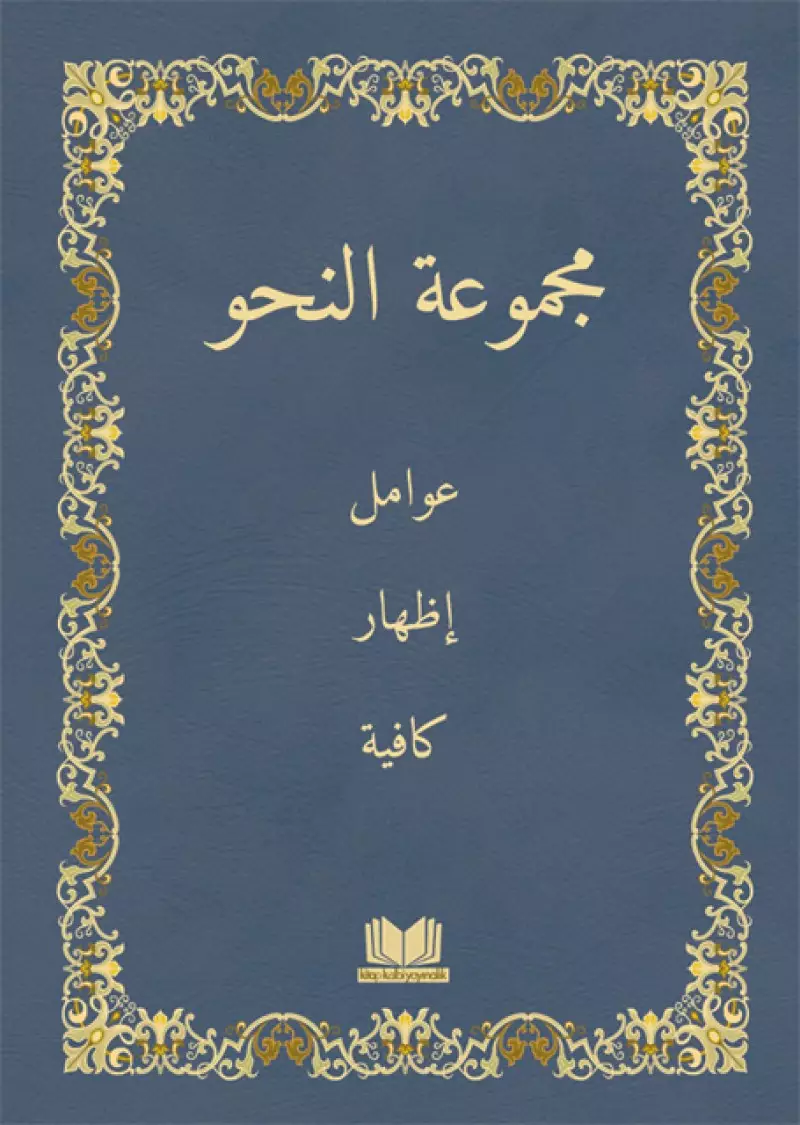 مجموعة النحو
عوامل
إظهار
كافية
kitap kalbi yayıncılık